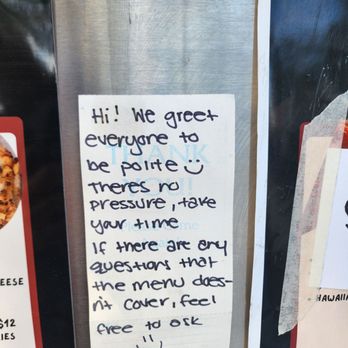 Hi! We greet
everyone to
be polite
theres no
pressure, take
your time
If there are any
questions that
the menu does-
n't cover, feel
free to ask
EESE
$12
IES
HAWAII